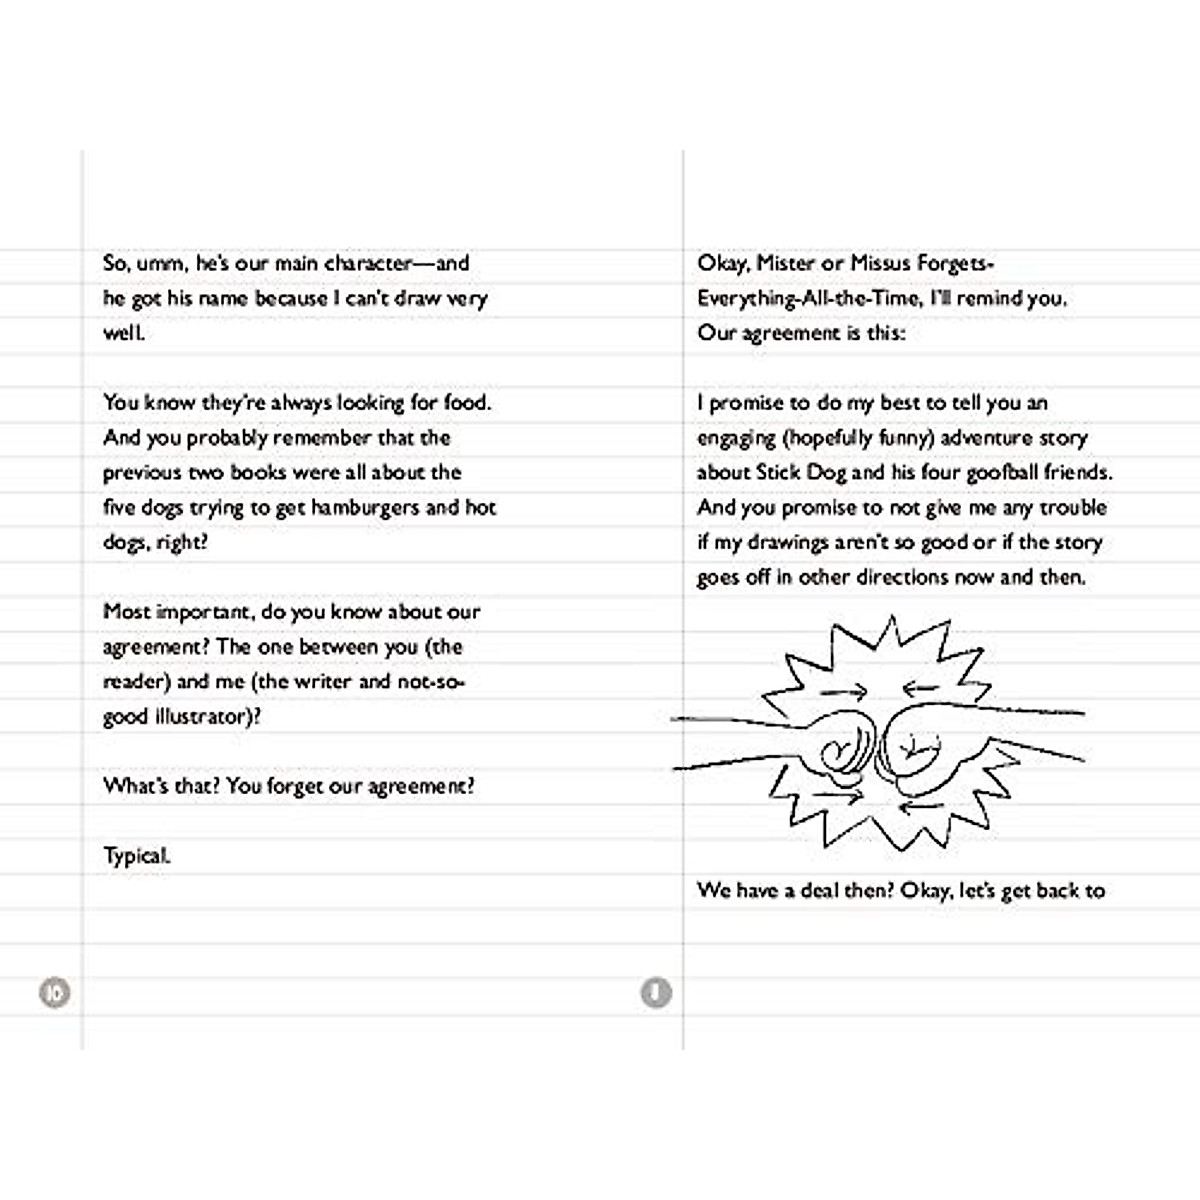 So, umm, he's our main character—and
he got his name because I can't draw very
well.
You know they're always looking for food.
And you probably remember that the
previous two books were all about the
five dogs trying to get hamburgers and hot
dogs, right?
Most important, do you know about our
agreement? The one between you (the
reader) and me (the writer and not-so-
good illustrator)?
What's that? You forget our agreement?
Typical.
10
Okay, Mister or Missus Forgets-
Everything-All-the-Time, I'll remind you.
Our agreement is this:
I promise to do my best to tell you an
engaging (hopefully funny) adventure story
about Stick Dog and his four goofball friends.
And you promise to not give me any trouble
if my drawings aren't so good or if the story
goes off in other directions now and then.
We have a deal then? Okay, let's get back to